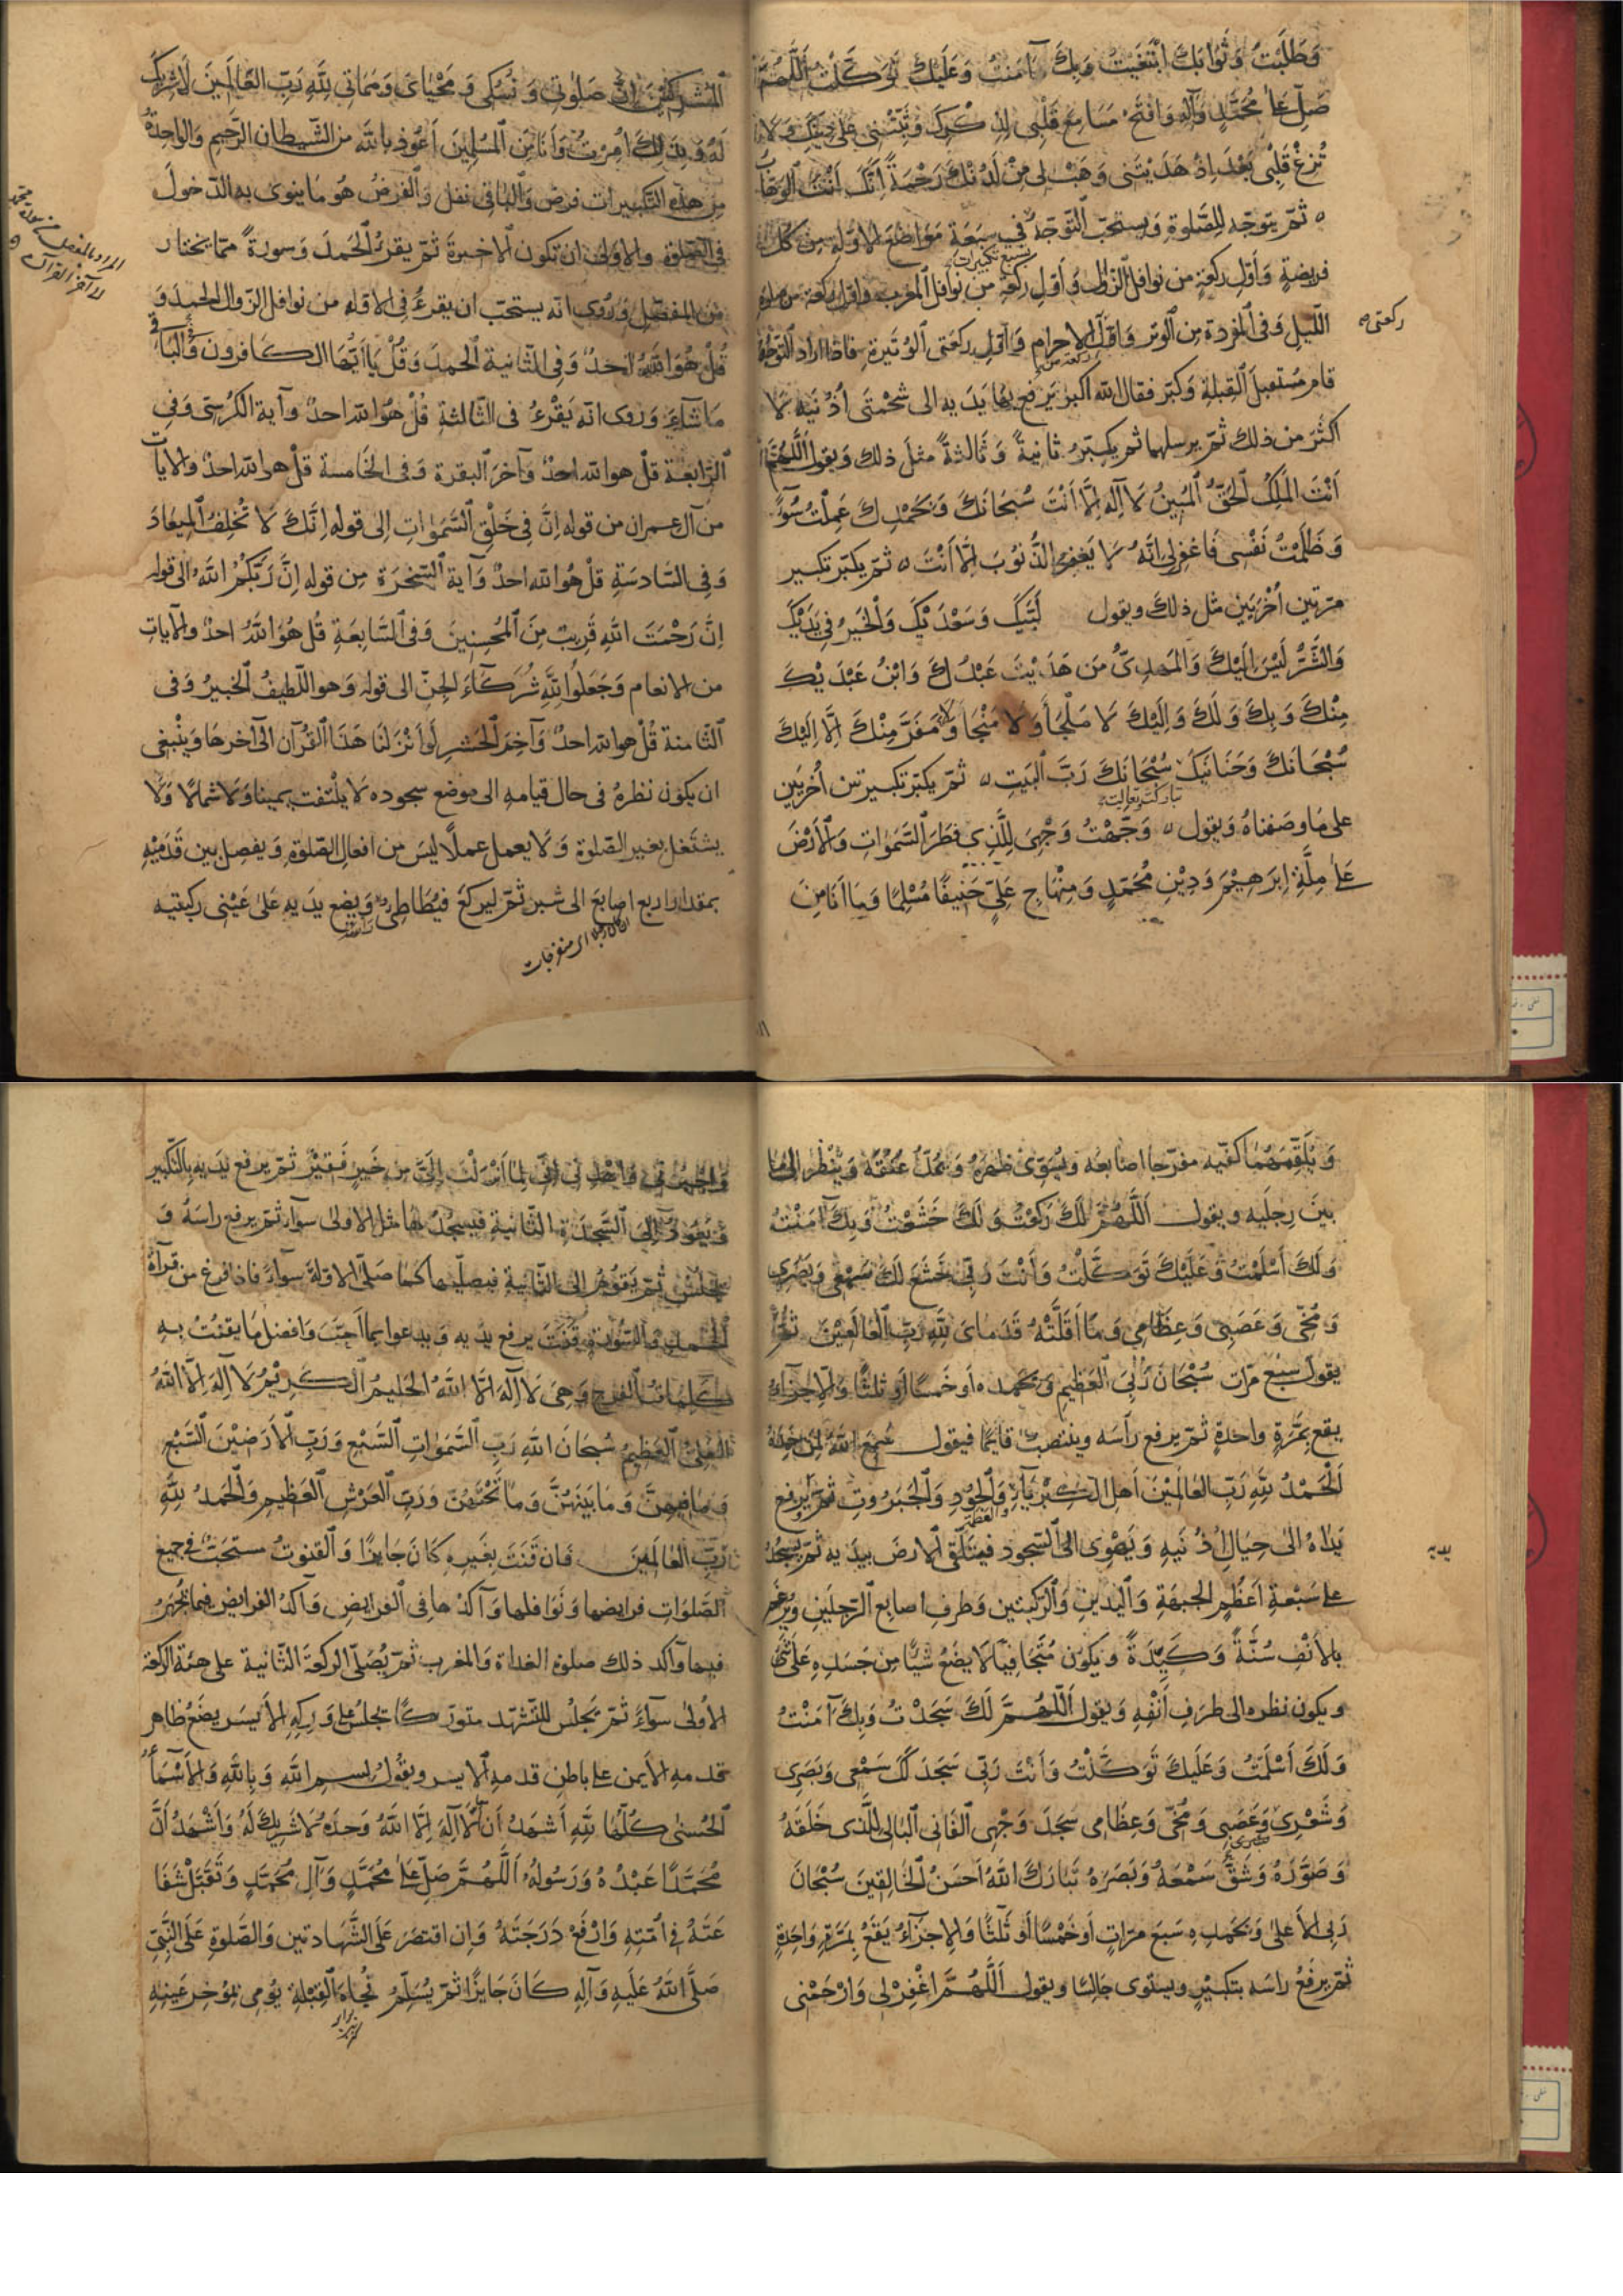 وَطَلَبْتُ وَثَوَابَكَ ابْتَغَيْتُ وَبِكَ آمَنْتُ وَعَلَيْكَ تَوَكَّلْتُ اَللَّهُمَّ
صَلِّ عَلَى مُحَمَّدٍ وَآلِهِ وَافْتَحْ مَسَامِعَ قَلْبِى لِذِكْرِكَ وَثَبِّتْنِى عَلَى دِينِكَ وَلَا
تُزِغْ قَلْبِى بَعْدَ اِذْ هَدَيْتَنِى وَهَبْ لِى مِنْ لَدُنْكَ رَحْمَةً اِنَّكَ اَنْتَ الْوَهَّابُ
ثمّ يتوجّه للصّلوة وَيستحبّ التّوجّهُ فِي سبعَة مَوَاضِعَ الاوّلة مِن كلّ
سبع تكبيرات
فريضةٍ وَأوّل ركعةٍ من نوافل الزّوال وَأوّل ركعةٍ من نوافل المغرب واوّل ركعة من صلوة
ركعتى
اللّيل وَفى المفردة من الوتر وَاوّل الاحرام وَاوّل ركعَتى الوُتيرة فاذا اراد التوجّه
ركعة من
قام مُستقبلَ القِبلة وَكبّر فقال اللّه اكبر يَرفع بها يدَيه الى شحْمتَى اُذنَيهِ لَا
اكثرَ من ذلك ثمّ يرسلهما ثم يكبّرُ ثانيةً وَثالثةً مثلَ ذلك وَيقول اَللَّهُمَّ
اَنْتَ الْمَلِكُ الْحَقُّ الْمُبِينُ لَا اِلَهَ اِلَّا اَنْتَ سُبْحَانَكَ وَبِحَمْدِكَ عَمِلْتُ سُوءً
وَظَلَمْتُ نَفْسِى فَاغْفِرْ لِى اِنَّهُ لَا يَغْفِرُ الذُّنُوبَ اِلَّا اَنْتَ ثمّ يكبّر تكبير
مرّتين اُخْرَيَين مثل ذلك ويقول لَبَّيْكَ وَسَعْدَيْكَ وَالْخَيْرُ فِى يَدَيْكَ
وَالشَّرُّ لَيْسَ اِلَيْكَ وَالْمَهْدِىُّ مَنْ هَدَيْتَ عَبْدُكَ وَابْنُ عَبْدَيْكَ
مِنْكَ وَبِكَ وَلَكَ وَاِلَيْكَ لَا مَلْجَأَ وَلَا مَنْجَا وَلَا مَفَرَّ مِنْكَ اِلَّا اِلَيْكَ
سُبْحَانَكَ وَحَنَانَيْكَ سُبْحَانَكَ رَبَّ الْبَيْتِ ثمّ يكبّر تكبيرتين اُخريَين
تباركت وتعاليت
على مَا وصفناهُ وَيقول وَجَّهْتُ وَجْهِىَ لِلَّذِى فَطَرَ السَّمَوَاتِ وَالْاَرْضَ
عَلَى مِلَّةِ اِبْرَهِيمَ وَدِيْنِ مُحَمَّدٍ وَمِنْهَاجِ عَلِيٍّ حَنِيفًا مُسْلِمًا وَمَا اَنَا مِنَ
الْمُشْرِكِيْنَ اِنَّ صَلَوتِى وَنُسُكِى وَمَحْيَاىَ وَمَمَاتِى لِلَّهِ رَبِّ الْعَالَمِينَ لَا شَرِيكَ
لَهُ وَبِذَلِكَ اُمِرْتُ وَاَنَا مِنَ الْمُسْلِمِينَ اَعُوذ بِاللّه من الشّيطان الرّجيم وَالواحدةُ
من هذه التّكبيرات فرض وَالباقى نفل وَالفرضُ هُو مَا ينوى به الدّخولَ
فى الصّلوة والاولى ان تكون الاخيرةَ ثمّ يقرءُ الحَمدَ وَسورةً ممّا يختار
من المفصّل وَرُوى انّه يستحبّ ان يقرءُ فِى الاوّلة من نوافل الزّوال الحمدَ وَ
قُلْ هُوَ اللَّهُ اَحَدٌ وَفى الثّانية الحمدَ وَقُلْ يَا اَيُّهَا الكَافرون وَالْبَاقى
مَا شاءَ وَروى انّه يَقْرءُ فى الثّالثةِ قُلْ هُوَ اللّه احدٌ وآية الكرْسى وَفى
الرّابعة قلْ هو اللّه احدٌ وَآخرَ البقرة وَفى الخَامسة قلْ هو اللّه احدٌ والآيات
من آل عمران من قوله اِنَّ فِي خَلْقِ السَّمَوَاتِ اِلى قوله اِنَّكَ لَا تُخْلِفُ الْمِيعَادَ
وَفى السّادسَةِ قلْ هُو اللّه احدٌ وَآية السّخرَة مِن قوله اِنَّ رَبَّكُمُ اللَّهُ الى قوله
اِنَّ رَحْمَتَ اللَّهِ قَرِيبٌ مِنَ الْمُحْسِنِينَ وَفى السّابعَةِ قُل هُوَ اللَّهُ احدٌ والآيات
من الانعام وَجَعَلُوا لِلَّهِ شُرَكَآءَ الْجِنَّ الى قوله وَهو اللّطيفُ الخَبيرُ وَفى
الثّامنة قُلْ هو اللّه احدٌ وَآخِرَ الحَشرِ لَوْ اَنْزَلْنَا هَذَا الْقُرْآنَ اِلى آخرهَا وَينْبغى
ان يكون نظرهُ فى حال قيامهِ الى موضع سجوده لَا يلْتفت يمينا وَلَا شمالًا وَلَا
يشتغل بغير الصّلوة وَلَا يعمل عملًا ليسَ من افعال الصّلوة وَيفصل بين قَدَمَيْهِ
بمقدار اربع اصابعَ الى شبر ثمّ ليركعَ فيُطاطِئ وَيضع يدَيهِ عَلى عَيْنَى ركبتيه
رأسه
المراد بالمفصل من سورة محمد
الى آخر القرآن
وَيلقمهُمَا كفّيه مفرّجا اصَابعَه ويُسَوّى ظهرَهُ وَيمُدّ عُنُقَهُ وَيَنْظر الى مَا
بينَ رِجليهِ ويقول اَللَّهُمَّ لَكَ رَكَعْتُ وَلَكَ خَشَعْتُ وَبِكَ آمَنْتُ
وَلَكَ اَسْلَمْتُ وَعَلَيْكَ تَوَكَّلْتُ وَاَنْتَ رَبِّى خَشَعَ لَكَ سَمْعِى وَبَصَرِى
وَمُخِّى وَعَصَبِى وَعِظَامِي وَمَا اَقَلَّتْهُ قَدَمَاىَ لِلَّهِ رَبِّ الْعَالَمِيْنَ ثمّ
يقول سبْعَ مرّات سُبْحَانَ رَبِّىَ الْعَظِيمِ وَبِحَمْدِهِ اَو خَمسًا اَو ثلثًا وَالاجزآءُ
يقع بمَرّةٍ واحدةٍ ثمّ يرفع رَأسَه وينتصبُ قايمًا فيقول سَمِعَ اللَّهُ لِمَنْ حَمِدَهُ
اَلْحَمْدُ لِلَّهِ رَبِّ الْعَالَمِيْنَ اَهْلِ الْكِبْرِيَآءِ وَالْجُودِ وَالْجَبَرُوتِ ثمّ يَرفع
والعظمة
يدَاهُ الى حِيَالِ اُذُنَيهِ وَيَهْوِى الى السّجود فيتلَقّى الارضَ بيدَيه ثمّ يَسْجُدُ
يديه
على سَبْعةِ اَعْظُمٍ الجبهَةِ وَاليدَينِ وَالرّكبتين وَطرفِ اصابع الرّجلَينِ وَيُرْغِم
بالاَنْفِ سُنَّةً وَكِيدَةً ويَكون مُتَجَافِيًا لَا يضَعُ شيئًا من جَسَدِهِ عَلَى شَئ
ويكون نظره الى طرَفِ اَنْفِهِ وَيقول اَللَّهُمَّ لَكَ سَجَدْتُ وَبِكَ آمَنْتُ
وَلَكَ اَسْلَمْتُ وَعَلَيْكَ تَوَكَّلْتُ وَاَنْتَ رَبِّى سَجَدَ لَكَ سَمْعِى وَبَصَرِى
وَشَعْرِى وَعَصَبِى وَمُخِّى وَعِظَامِى سَجَدَ وَجْهِى الْفَانِى الْبَالِى لِلَّذِى خَلَقَهُ
وَصَوَّرَهُ وَشَقَّ سَمْعَهُ وَبَصَرَهُ تَبَارَكَ اللَّهُ اَحْسَنُ الْخَالِقِينَ سُبْحَانَ
رَبِّىَ الْاَعْلَى وَبِحَمْدِهِ سَبعَ مرّاتٍ اَو خَمْسًا اَو ثَلَثًا وَالاجزآءُ يَقَعُ بمَرّةٍ وَاحِدَةٍ
ثمّ يرفَعُ راسَه بتكبيْرٍ ويستوى جَالسًا ويقول اَللَّهُمَّ اغْفِرْ لِى وَارْحَمْنِى
لِمَا اَنْزَلْتَ اِلَىَّ مِنْ خَيرٍ فَقيْرٌ ثمّ يرفع يدَيهِ بالتّكبير
وَيَعُودُ اِلَى السّجدَة الثّانية فيسجُدُهَا مثل الاولى سوآء ثمّ يرفع راسَهُ وَ
يَجْلسُ ثمّ يَقوْمُ الى الثّانية فيصلّيها كمَا صلّى الاوّلة سوآءً فاذا فرغ من قرآة
الحمد والسّورة قَنَتَ يرفع يدَيه وَيدعوا بما اَحبّ وَافضل مَا يقنُتُ بِهِ
كلمات الفرج وَهِىَ لَا اِلَهَ اِلَّا اللَّهُ الْحَلِيمُ الْكَرِيْمُ لَا اِلَهَ اِلَّا اللَّهُ
الْعَلِىُّ الْعَظِيمُ سُبْحَانَ اللَّهِ رَبِّ السَّمَوَاتِ السَّبْعِ وَرَبِّ الْاَرَضِيْنَ السَّبْعِ
وَمَا فِيهِنَّ وَمَا بَيْنَهُنَّ وَمَا تَحْتَهُنَّ وَرَبِّ الْعَرْشِ الْعَظِيمِ وَالْحَمْدُ لِلَّهِ
رَبِّ الْعَالَمِينَ فَان قَنَتَ بغَيره كَانَ جَايزًا وَالقنوتُ مستحَبّ فى جميع
الصّلوَات فرايضها وَنوَافلها وَآكدُهَا فى الفرايض وَآكدُ الفرايض فيما يُجْهَرُ
فيها وَآكد ذلك صلوة الغداة وَالمغرب ثمّ يُصَلّى الركعَة الثّانية على هيئة الركعة
الاُولى سوآءً ثمّ يَجْلسُ للتّشهّد متورّكًا يجلسُ على وَرِكِهِ الاَيسَر يضَعُ ظاهر
قدمهِ الاَيمن على باطِن قدمهِ الايسر ويقُولُ بِسْمِ اللَّهِ وَبِاللَّهِ وَالْاَسْمَآءُ
الْحُسْنَى كُلُّهَا لِلَّهِ اَشْهَدُ اَنْ لَا اِلَهَ اِلَّا اللَّهُ وَحْدَهُ لَا شَرِيكَ لَهُ وَاَشْهَدُ اَنَّ
مُحَمَّدًا عَبْدُهُ وَرَسُولُهُ اَللَّهُمَّ صَلِّ عَلَى مُحَمَّدٍ وَآلِ مُحَمَّدٍ وَتَقَبَّلْ شَفَا
عَتَهُ فِى اُمَّتِهِ وَارْفَعْ دَرَجَتَهُ وَاِن اقتصَرَ عَلَى الشّهَادتين وَالصَّلوةِ عَلَى النَّبِىِّ
صَلَّى اللَّهُ عَلَيهِ وَآلِهِ كَانَ جَايزًا ثمّ يُسَلّمُ تُجاهَ القِبْلةِ يُومِى بمؤخر عَينِهِ